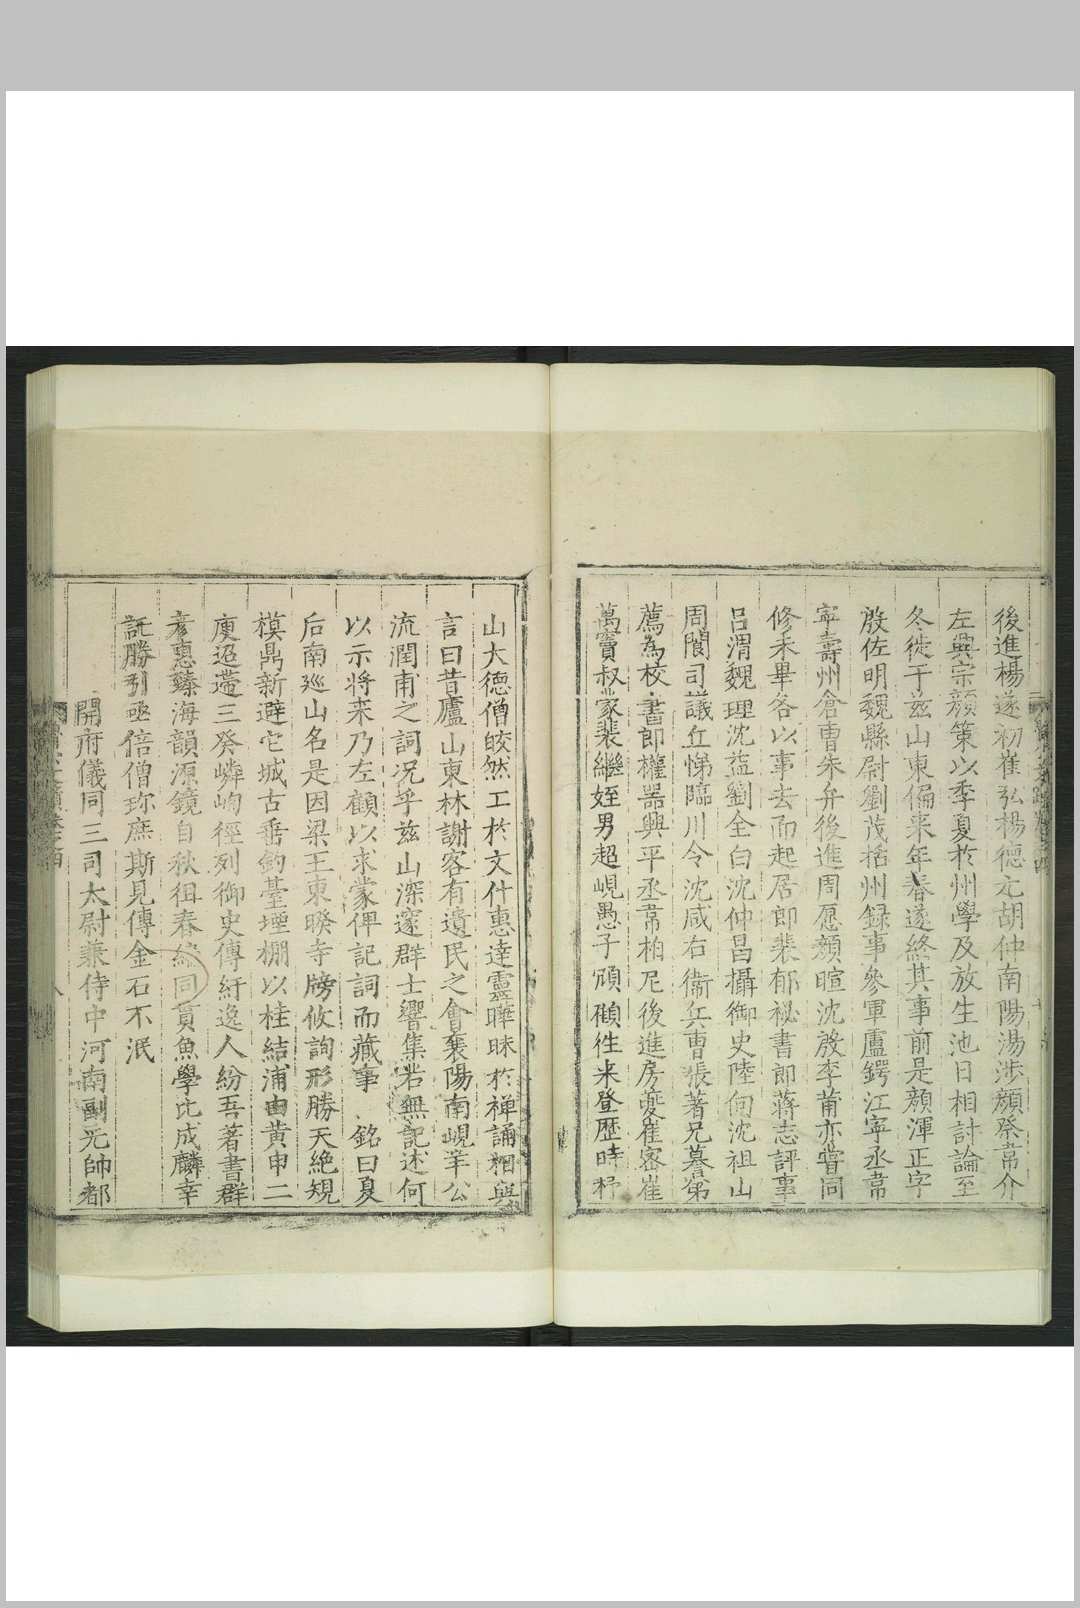 後進楊遂初崔弘楊德元胡仲南陽湯涉顏祭韋介
左興宗顏策以季夏於州學及放生池日相討論至
冬徙于兹山東偏来年春遂終其事前是顏渾正字
殷佐明魏縣尉劉茂括州録事參軍盧鍔江寧丞韋
寧壽州倉曹朱弁後進周愿顏暄沈殷李莆亦嘗同
修未畢各以事去而起居郎裴郁祕書郎蔣志評事
吕渭魏理沈益劉全白沈仲昌攝御史陸向沈祖山
周閬司議丘悌臨川令沈咸右衞兵曹張著兄謩弟
薦為校書郎權器興平丞韋柏尼後進房夔崔密崔
萬竇叔蒙裴繼姪男超峴愚子頎顏徃来登歷時杼
山大德僧皎然工於文什惠達靈曄昧於禅誦相與
言曰昔廬山東林謝客有遺民之會襄陽南峴羊公
流潤甫之詞况乎兹山深邃群士響集若無記述何
以示将来乃左顧以求蒙俾記詞而藏事銘曰夏
后南廵山名是因梁王東暌寺牓攸詢形勝天絶規
模鼎新避它城古垂釣臺堙棚以桂結浦由黄申二
庾迢遰三癸嶙峋徑列御史傳紆逸人紛吾著書群
彦惠臻海韻源鏡自秋徂春編同貫魚學比成麟幸
託勝引亟倍僧珎庶斯見傳金石不泯
開府儀同三司太尉兼侍中河南副元帥都